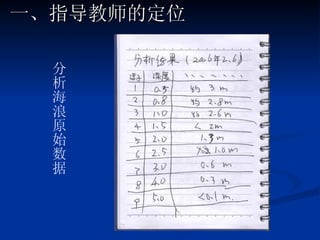 一、指导教师的定位
分析海浪原始数据
分析结果（2006年2.6）
深度
1 0.5 约 3 m
2 0.8 约 2.8m
3 1.0 约 2.6m
4 1.5 < 2m
5 2.0
6 2.5 1.0 m
7 3.0 0.6 m
8 4.0 0.3 m
9 5.0 <0.1 m